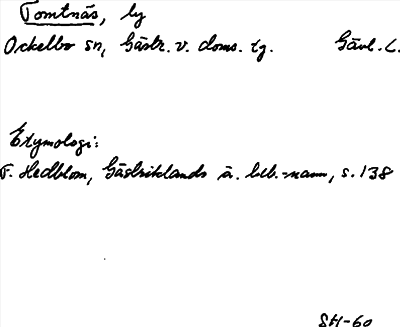 Tomtnäs, by
Ockelbo sn, Gästr. v. doms. tg. Gävl. l.
Etymologi:
F. Hedblom, Gästriklands ä. beb.-namn, s. 138
SH-60